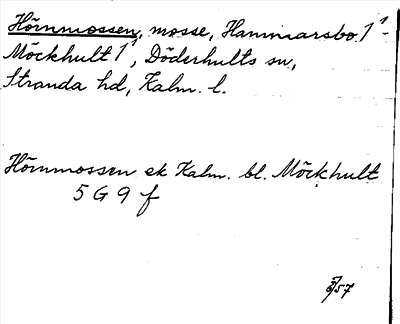 Hörnmossen, mosse, Hammarsbo 1¹ -
Möckhult 1¹, Döderhults sn,
Stranda hd, Kalm. l.
Hörnmossen ek Kalm. bl. Möckhult
5 G 9 f
57